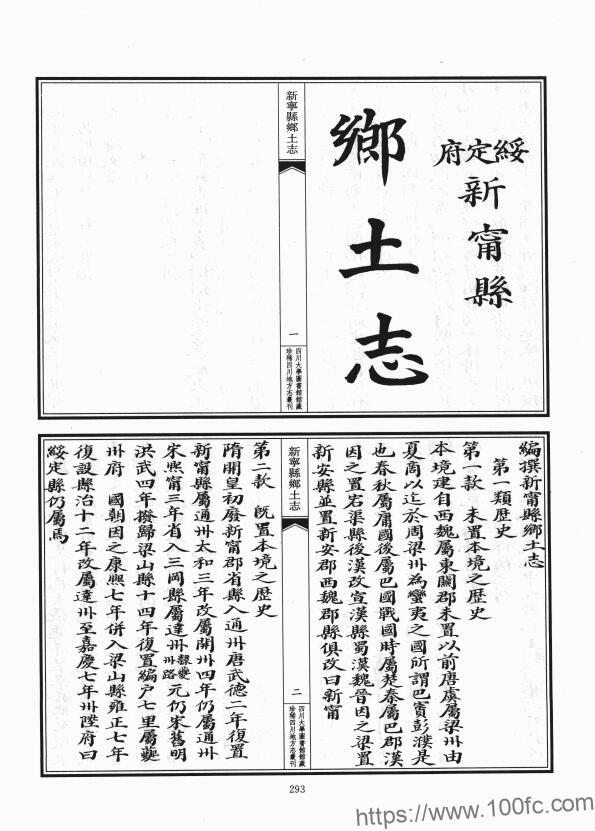 綏定府
新甯縣
鄉土志
新寧縣鄉土志
一
四川大學圖書館館藏
珍稀四川地方志叢刊
編撰新甯縣鄉土志
第一類歷史
第一款 未置本境之歷史
本境建自西魏屬東關郡未置以前唐虞屬梁州由
夏商以迄於周梁州為蠻夷之國所謂巴賨彭濮是
也春秋屬庸國後屬巴國戰國時屬楚秦屬巴郡漢
因之置宕渠縣後漢改宣漢縣蜀漢魏晉因之梁置
新安縣並置新安郡西魏郡縣俱改曰新甯
新寧縣鄉土志
二
四川大學圖書館館藏
珍稀四川地方志叢刊
第二款 既置本境之歷史
隋開皇初廢新甯郡省縣入通州唐武德二年復置
新甯縣屬通州太和三年改屬開州四年仍屬通州
宋熙甯三年省入三岡縣屬達州夔州路元仍宋舊明
洪武四年撥歸梁山縣十四年復置編户七里屬夔
州府 國朝因之康熙七年併入梁山縣雍正七年
復設縣治十二年改屬達州至嘉慶七年州陞府曰
綏定縣仍屬焉
293
https://www.100fc.com